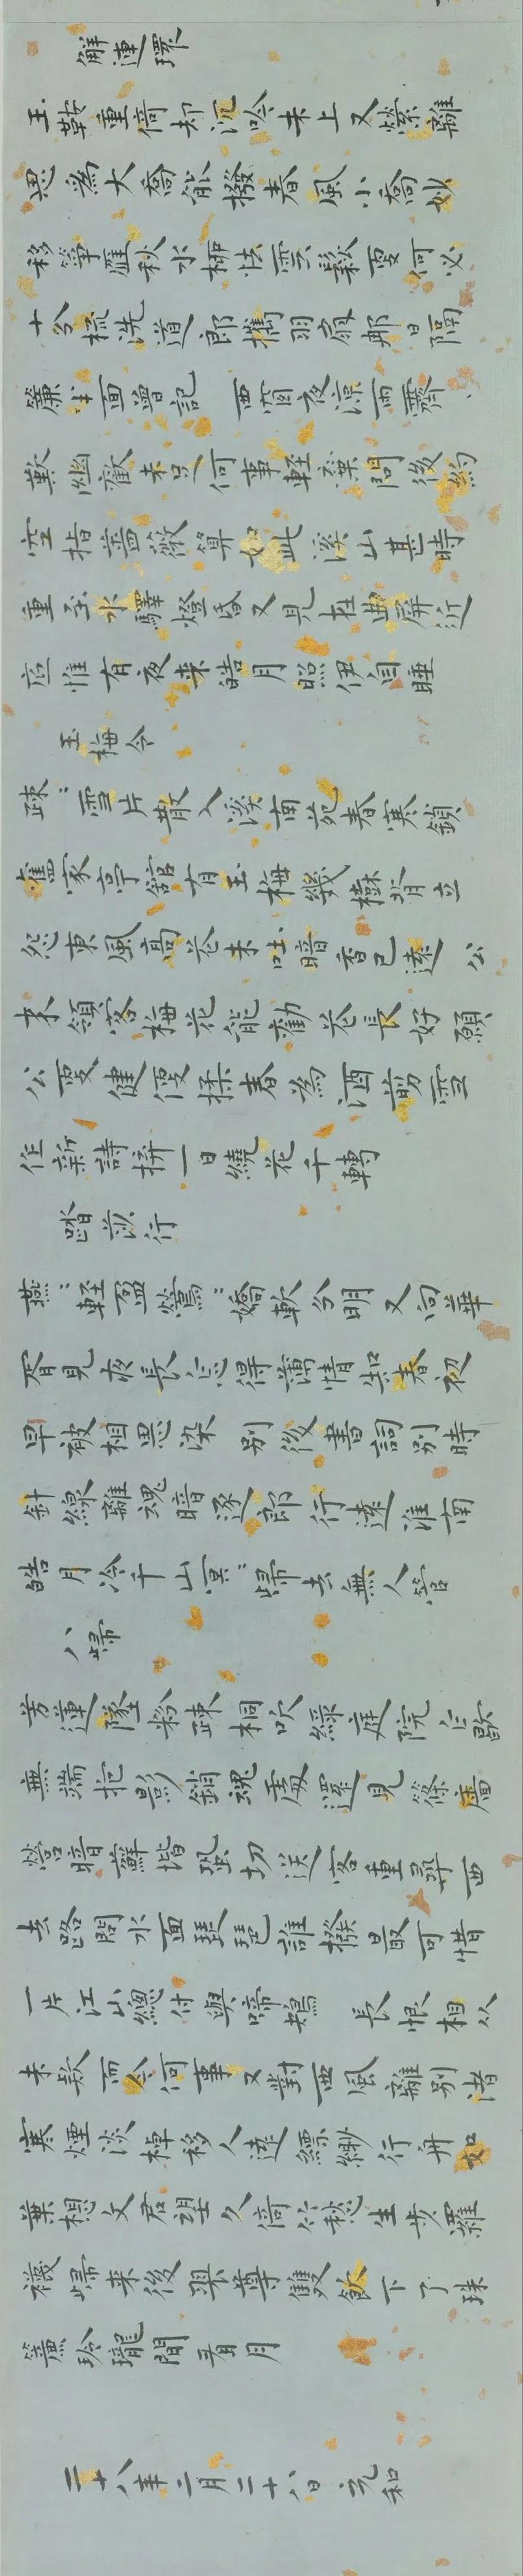 解連環
玉鞍重倚却沉吟未上又縈離
思為大喬能撥春風小喬妙
移箏雁秋水柳怯雲鬆更何必
十分梳洗道郎攜羽扇那日隔
簾半面曾記 西窗夜涼雨霽
歎幽歡未足何事輕棄問後約
空指薔薇算如此溪山甚時
重至水驛燈昏又見在曲屏近
底惟有夜来皓月照伊自睡
玉梅令
疎〻雪片散入溪南苑春寒鎖
舊家亭館有玉梅幾樹背立
怨東風高花未吐暗香已遠 公
来領客梅花能勸花長好願
公更健便揉春為酒剪雪
作新詩拚一日繞花千轉
踏莎行
燕〻輕盈鶯〻嬌軟分明又向華
胥見夜長怎得薄情知春初
早被相思染 別後書詞別時
針線離魂暗逐郎行遠淮南
皓月冷千山冥〻歸去無人管
八歸
芳蓮墜粉疎桐吹綠庭院乍歇
無端抱影銷魂處還見篠廧
螢暗蘚堦蛩切送客重尋西
去路問水面琵琶誰撥最可惜
一片江山總付與啼鴂 長恨相从
未款而今何事又對西風離別渚
寒煙淡棹移人遠縹緲行舟如
葉想文君望久倚竹愁生步羅
襪歸来後翠尊雙飲下了珠
簾玲瓏閒看月
二十八年二月二十八日 元和